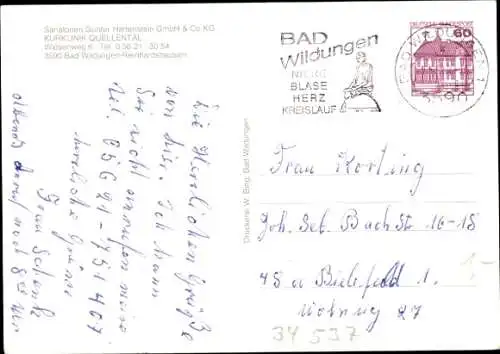 Sanatorien Günter Hartenstein GmbH & Co KG
KURKLINIK QUELLENTAL
Wiesenweg 6 Tel. 0 56 21 - 30 54
3590 Bad Wildungen-Reinhardshausen
BAD
Wildungen
NIERE
BLASE
HERZ
KREISLAUF
BAD WILDUNGEN 1
3590
DEUTSCHE BUNDESPOST
60
Die Herzlichen Grüße
von hier. Ich kann
Sie nicht anrufen meine
Tel. 05621-751407
herzliche Grüße
Frau Schenk
abends
Druckerei W. Bing, Bad Wildungen
Frau Korting
Joh. Seb. Bach St. 16-18
48 a Bielefeld 1.
Wohnug 27
34 537
1-